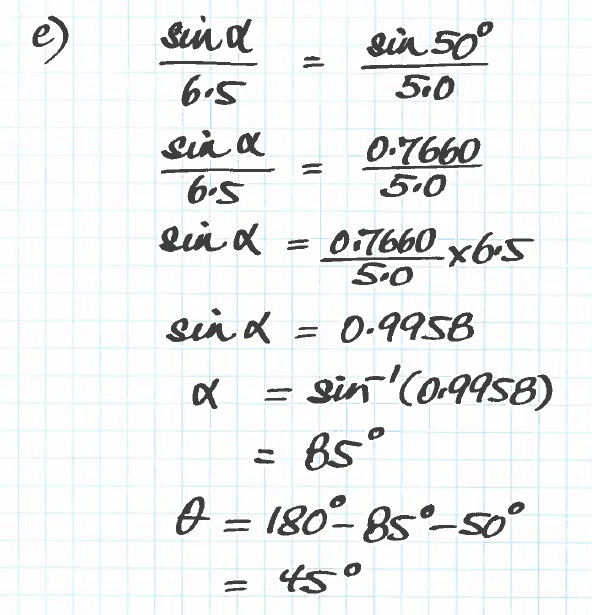 e) sin α / 6.5 = sin 50° / 5.0
sin α / 6.5 = 0.7660 / 5.0
sin α = 0.7660 / 5.0 × 6.5
sin α = 0.9958
α = sin⁻¹(0.9958)
= 85°
θ = 180° - 85° - 50°
= 45°